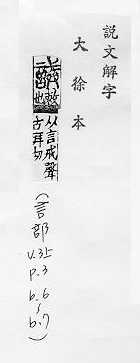 説文解字
大徐本
誡敕也从言戒聲
古拜切
(言部 v.3上 p.3 b.6~b.7)